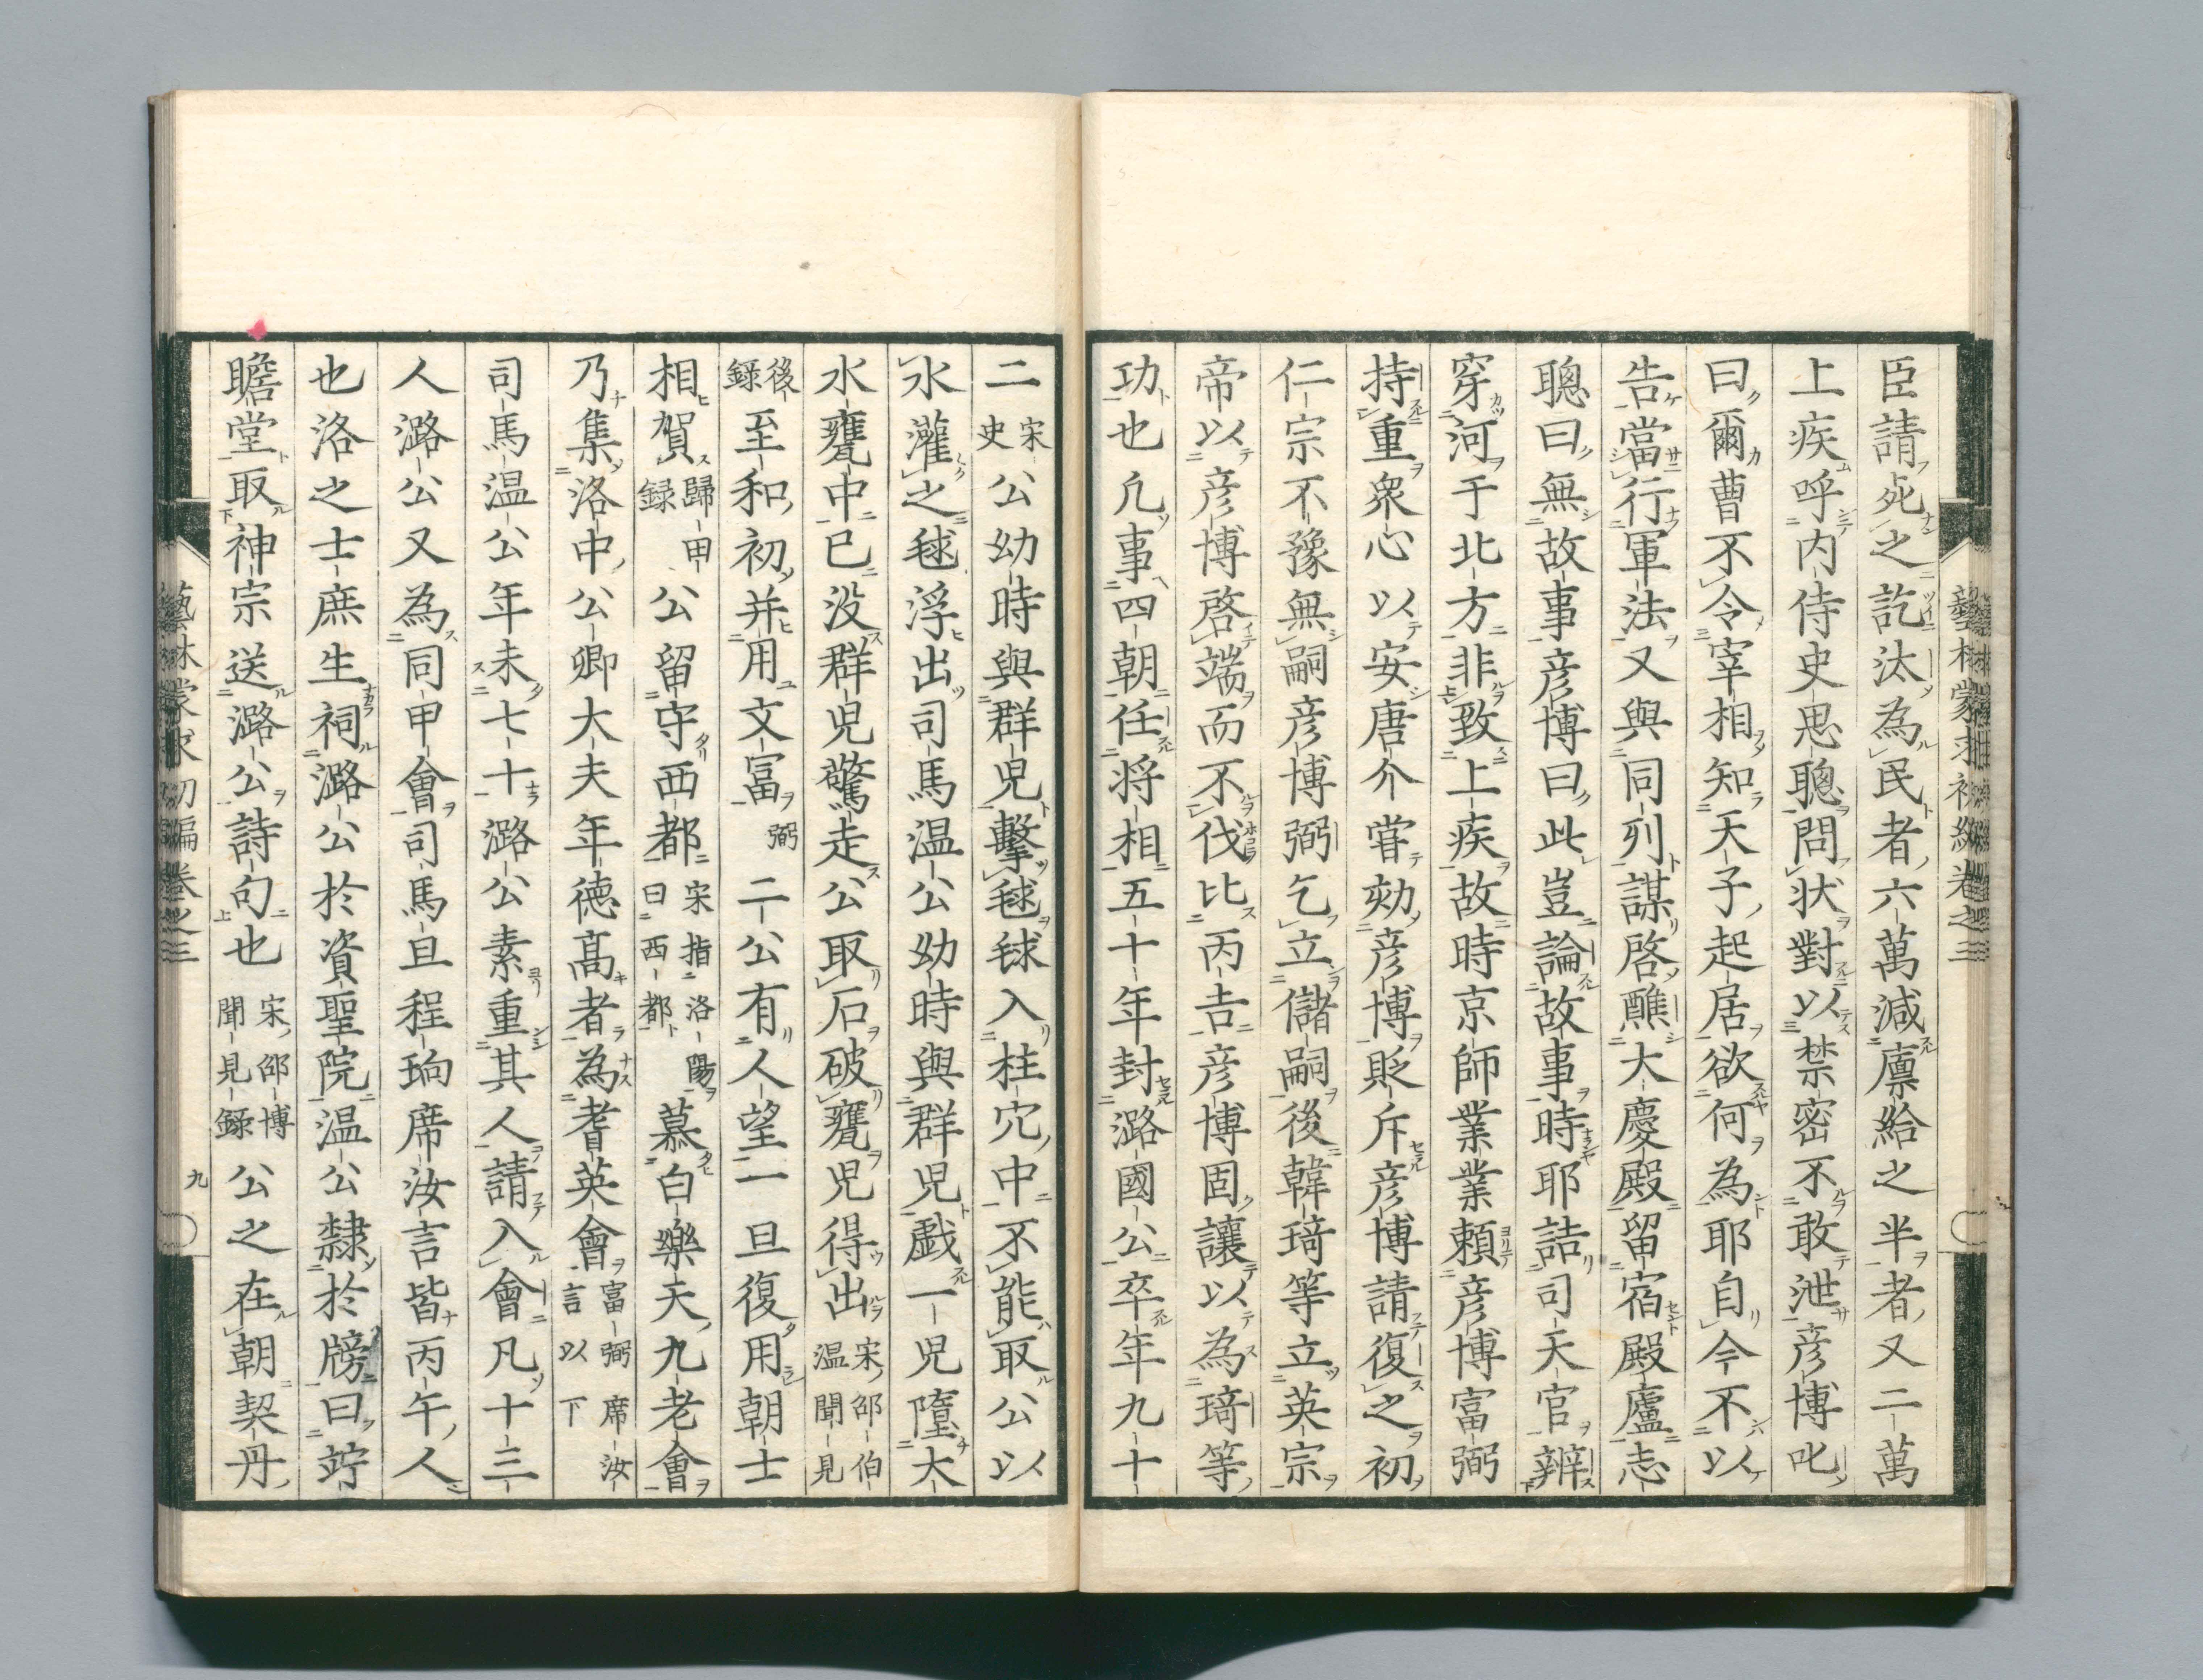 藝林蒙求初編卷之三
臣請死之訖汰為民者六萬減廩給之半者又二萬
上疾呼内侍史思聰問狀對以禁密不敢泄彦博叱
曰爾曹不令宰相知天子起居欲何為耶自今不以
告當行軍法又與同列謀啓醮大慶殿留宿殿廬志
聰曰無故事彦博曰此豈論故事時耶詰司天官辨
穿河于北方非致上疾故時京師業業頼彦博富弼
持重衆心以安唐介嘗劾彦博貶斥彦博請復之初
仁宗不豫無嗣彦博弼乞立儲嗣後韓琦等立英宗
帝以彦博啓端而不伐比丙吉彦博固讓以為琦等
功也凢事四朝任将相五十年封潞國公卒年九十
二宋史公幼時與群兒擊毬毬入柱穴中不能取公以
水灌之毬浮出司馬温公幼時與群兒戯一兒墮大
水甕中已没群兒驚走公取石破甕兒得出宋邵伯温聞見
後録至和初并用文富弼二公有人望一旦復用朝士
相賀歸田録公留守西都宋指洛陽曰西都慕白樂天九老會
乃集洛中公卿大夫年德髙者為耆英會富弼席汝言以下
司馬温公年未七十潞公素重其人請入會凡十三
人潞公又為同甲會司馬旦程珦席汝言皆丙午人
也洛之士庶生祠潞公於資聖院温公隸於牓曰竚
瞻堂取神宗送潞公詩句也宋邵博聞見録公之在朝契丹
藝林蒙求初編卷之三
九